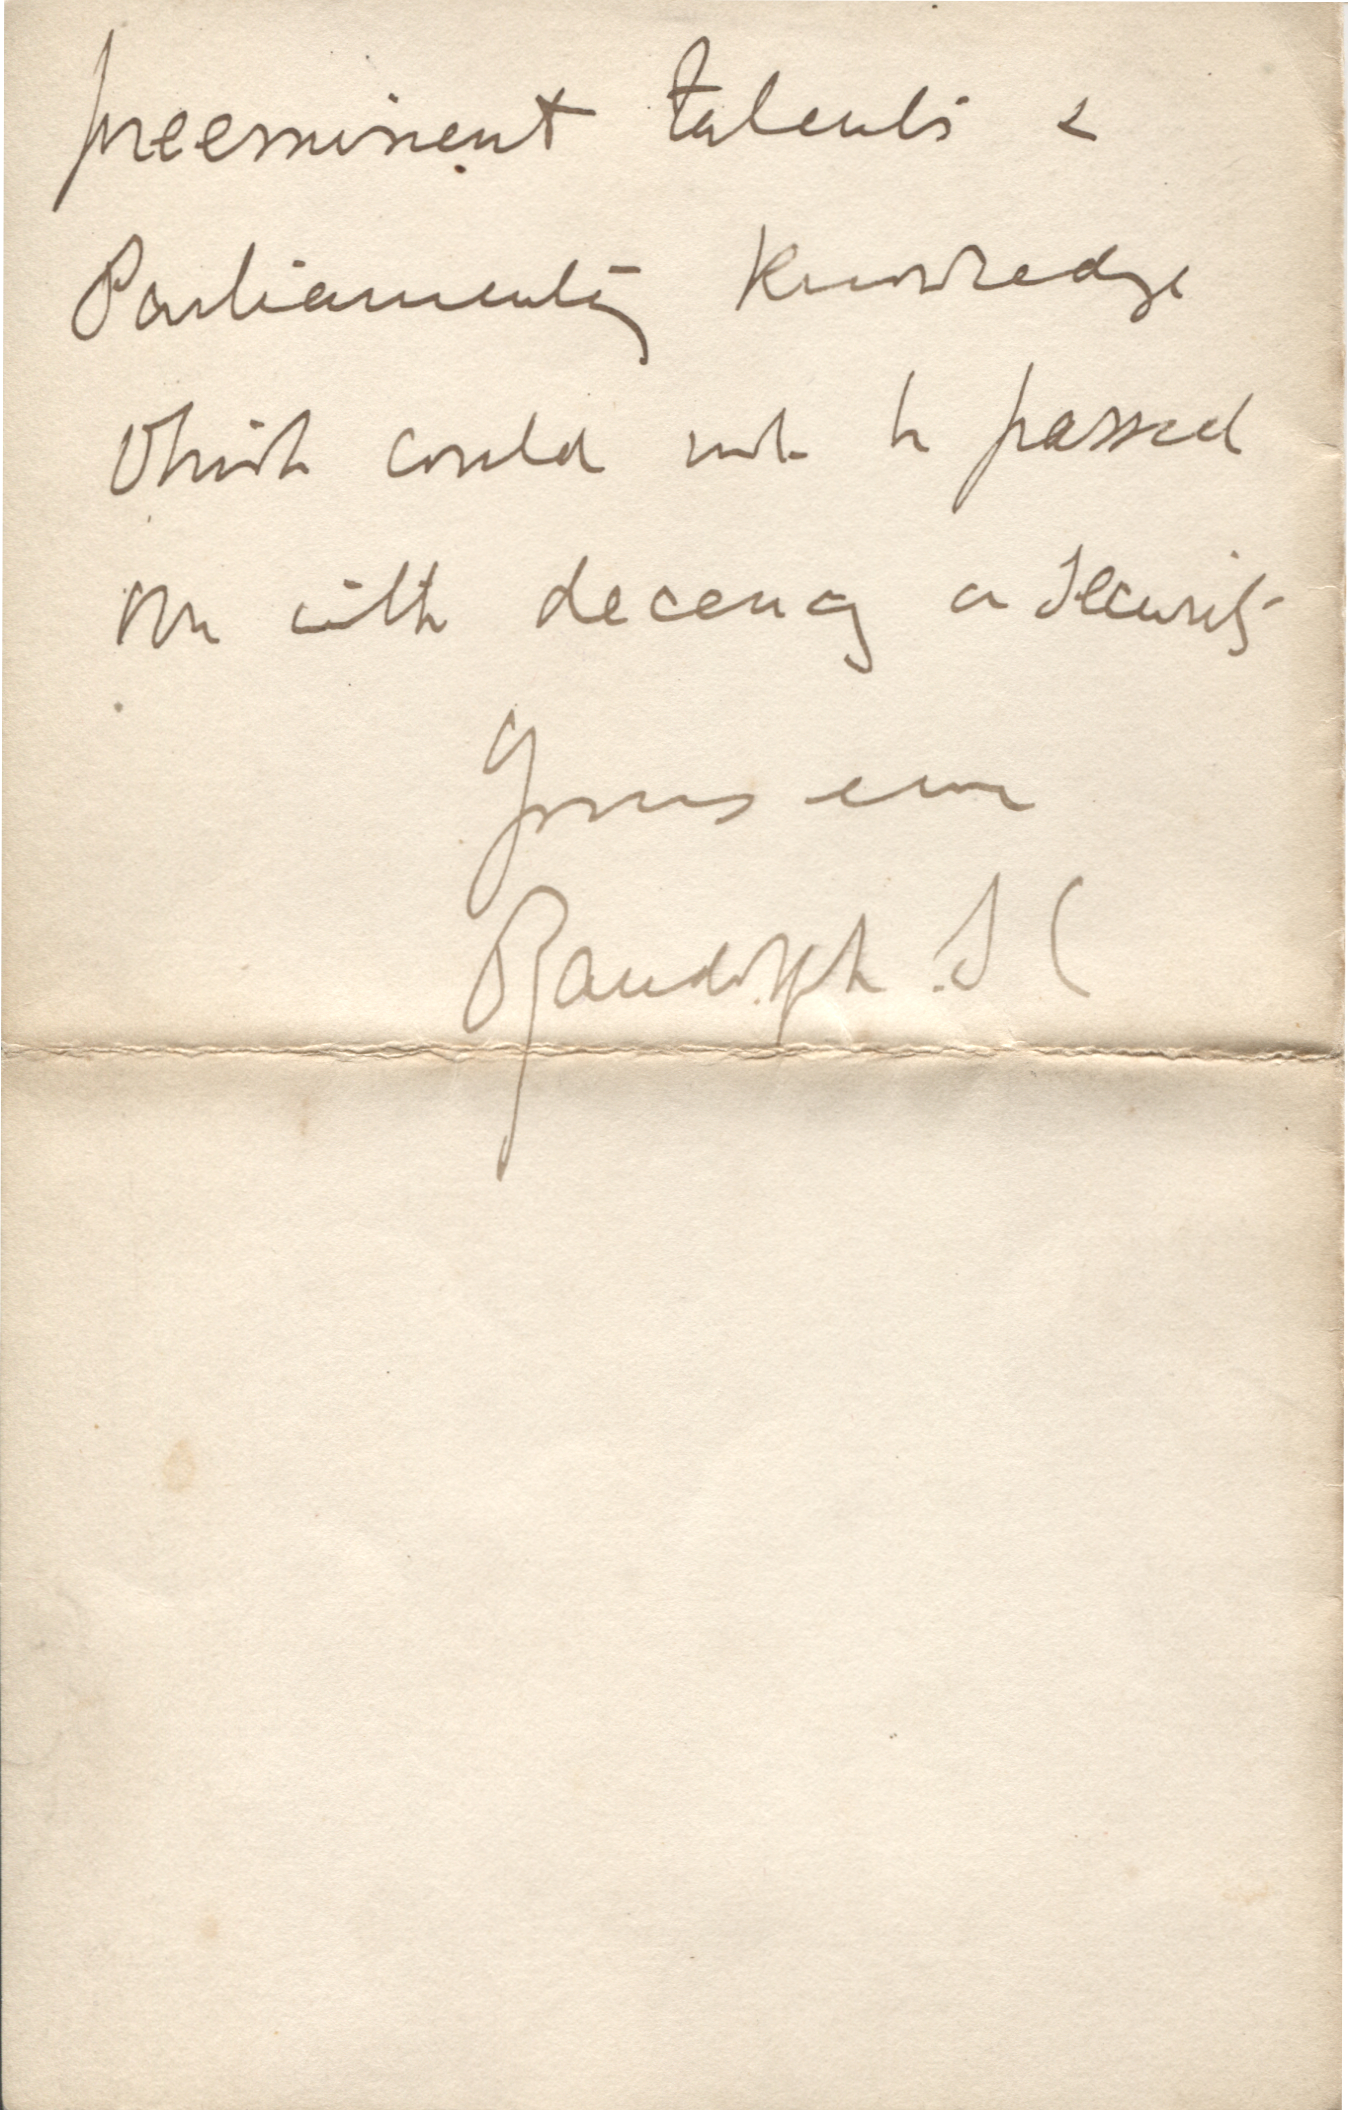 preeminent talents &
Parliamentary Knowledge
which could not be passed
over with decency or security
Yours ever
Randolph S C